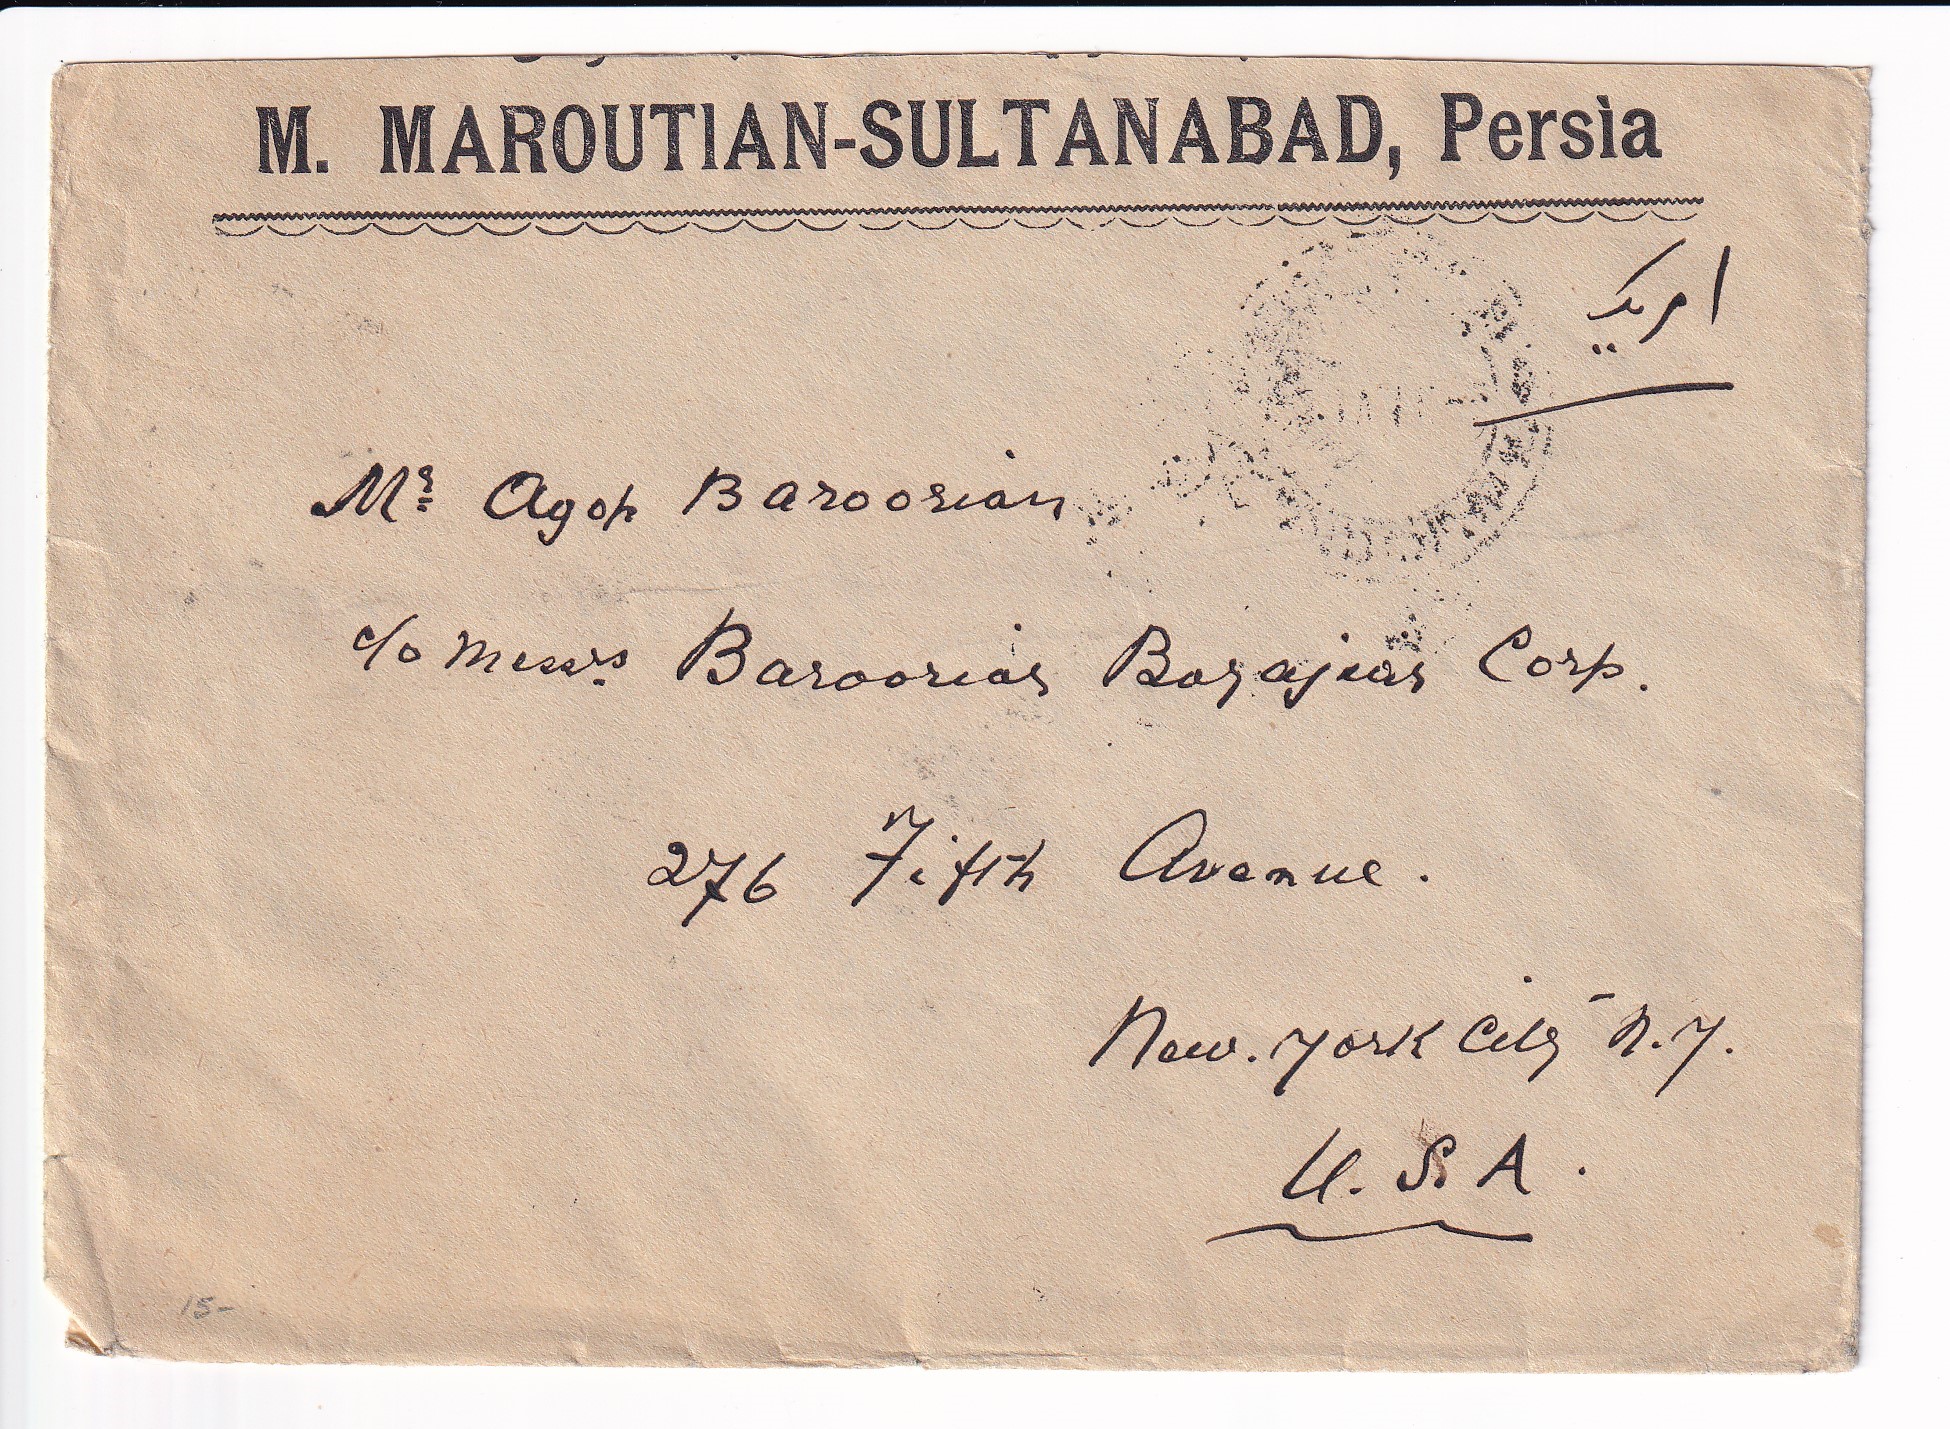 M. MAROUTIAN-SULTANABAD, Persia
امریک
Mr. Agop Baroosian
c/o Messrs. Baroosian Corp.
276 Fifth Avenue.
New. York City - N.Y.
U.S.A.
15-